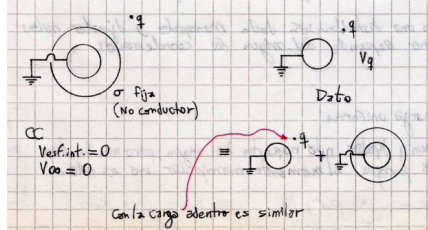 •q
•q
Vq
σ fija
(No conductor)
Dato
CC
Vesf.int.=0
V∞ = 0
≡
•q
+
Con la carga adentro es similar